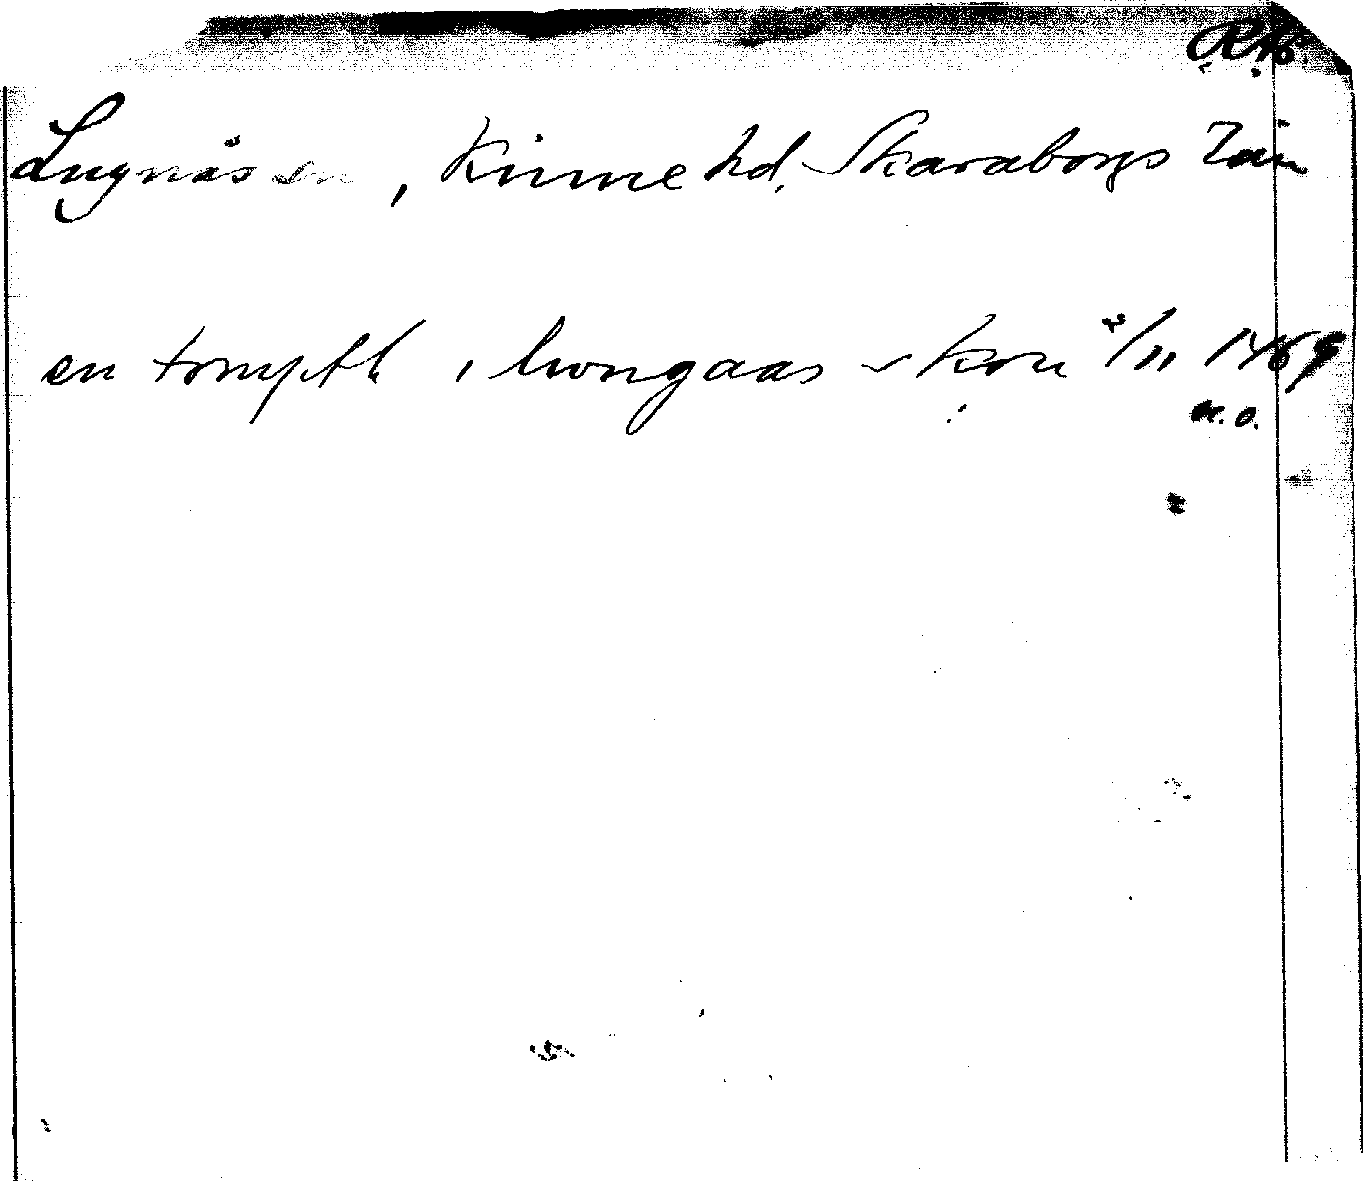 R.A.
Lugnås sn, Kinne hd, Skaraborgs län
en tompth i lwngaas skon 3/11 1469
or. o.